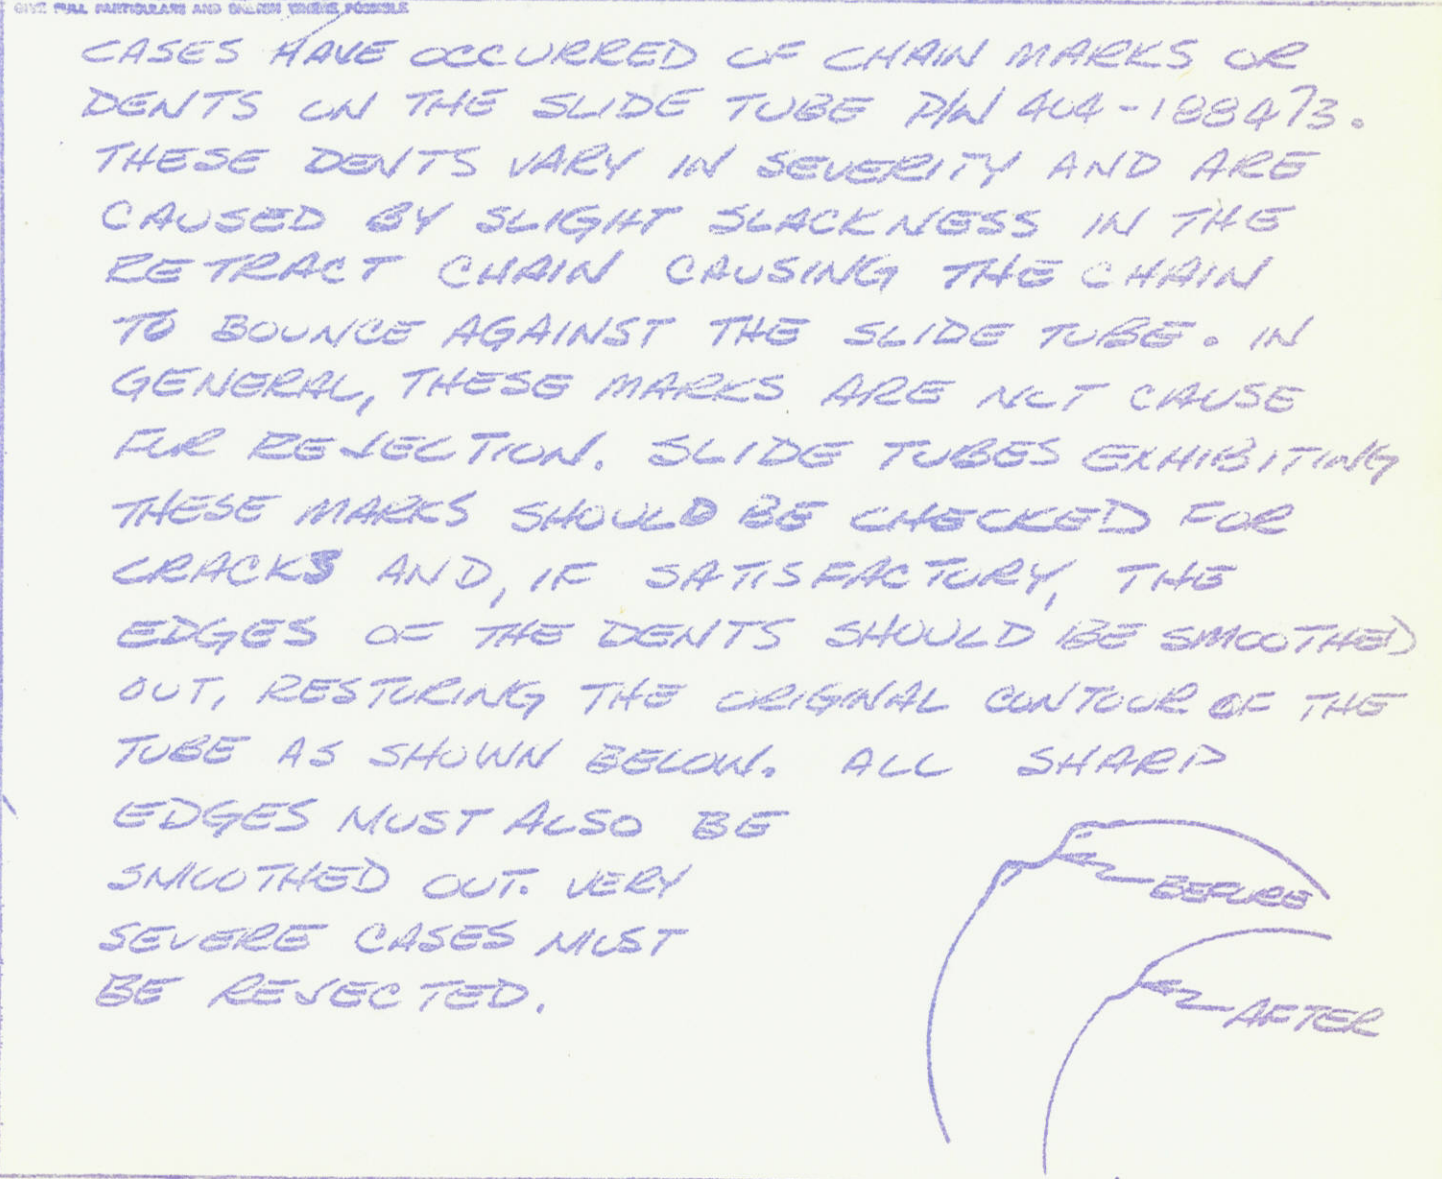 GIVE FULL PARTICULARS AND SKETCH WHERE POSSIBLE
CASES HAVE OCCURRED OF CHAIN MARKS OR
DENTS ON THE SLIDE TUBE P/N 404-188473.
THESE DENTS VARY IN SEVERITY AND ARE
CAUSED BY SLIGHT SLACKNESS IN THE
RETRACT CHAIN CAUSING THE CHAIN
TO BOUNCE AGAINST THE SLIDE TUBE. IN
GENERAL, THESE MARKS ARE NOT CAUSE
FOR REJECTION. SLIDE TUBES EXHIBITING
THESE MARKS SHOULD BE CHECKED FOR
CRACKS AND, IF SATISFACTORY, THE
EDGES OF THE DENTS SHOULD BE SMOOTHED
OUT, RESTORING THE ORIGINAL CONTOUR OF THE
TUBE AS SHOWN BELOW. ALL SHARP
EDGES MUST ALSO BE
SMOOTHED OUT. VERY
SEVERE CASES MUST
BE REJECTED.
BEFORE
AFTER